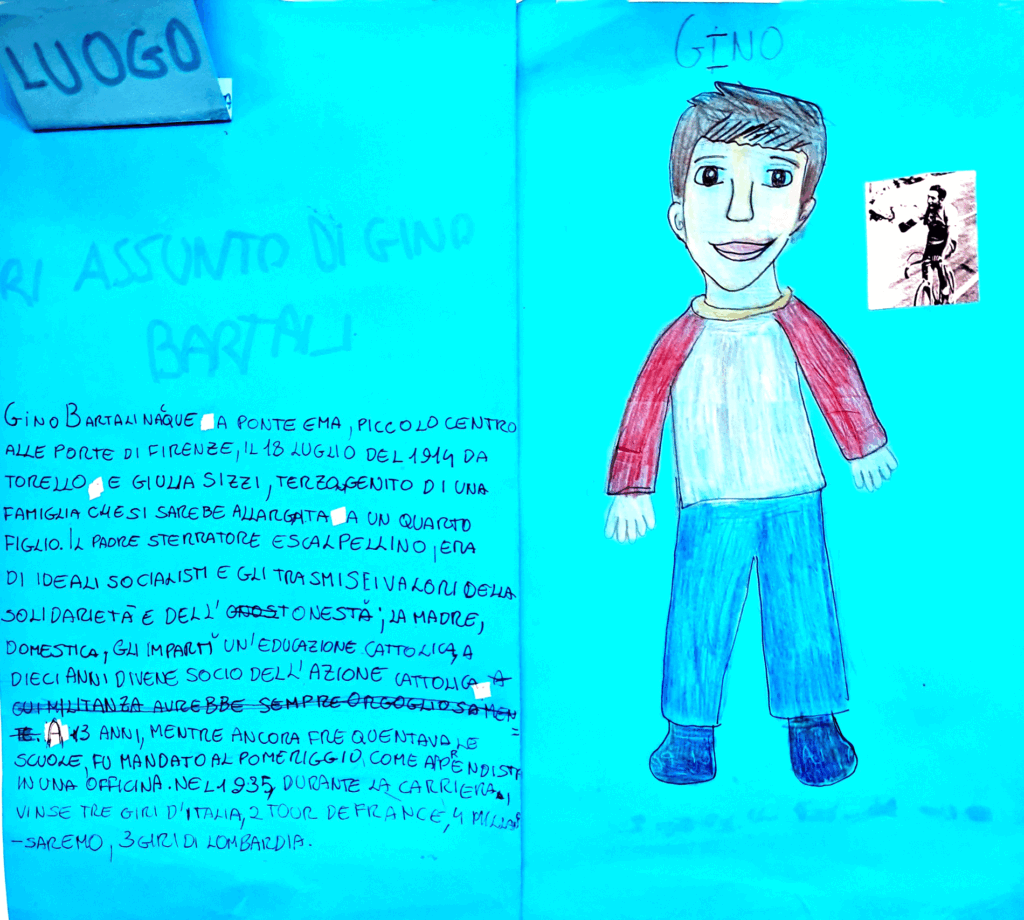 LUOGO
GINO
RIASSUNTO DI GINO
BARTALI
GINO BARTALI NAQUE A PONTE EMA, PICCOLO CENTRO
ALLE PORTE DI FIRENZE, IL 18 LUGLIO DEL 1914 DA
TORELLO E GIULIA SIZZI, TERZOGENITO DI UNA
FAMIGLIA CHE SI SAREBE ALLARGATA A UN QUARTO
FIGLIO. IL PADRE STERRATORE E SCALPELLINO, ERA
DI IDEALI SOCIALISTI E GLI TRASMISE I VALORI DELLA
SOLIDARIETÀ E DELL' ONESTÀ; LA MADRE,
DOMESTICA, GLI IMPARTÌ UN' EDUCAZIONE CATTOLICA, A
DIECI ANNI DIVENE SOCIO DELL'AZIONE CATTOLICA A
CUI MILITANZA AVREBBE SEMPRE ORGOGLIOSAMEN=
TE. A 13 ANNI, MENTRE ANCORA FREQUENTAVA LE
SCUOLE, FU MANDATO AL POMERIGGIO, COME APPRENDISTA
IN UNA OFFICINA. NEL 1935, DURANTE LA CARRIERA,
VINSE TRE GIRI D'ITALIA, 2 TOUR DE FRANCE, 4 MILANO
-SAREMO, 3 GIRI DI LOMBARDIA.